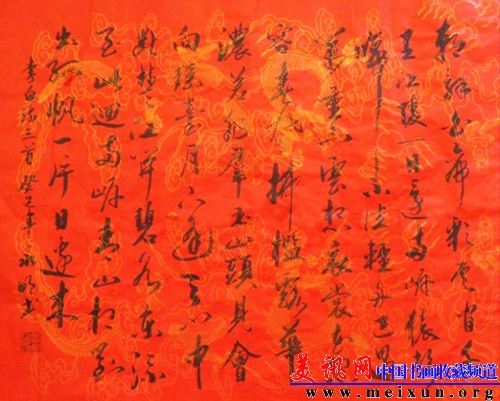 朝辞白帝彩雲间千
里江陵一日還两岸猿声
啼不住輕舟已過
萬重山雲想衣裳花想
容春风拂檻露華
濃若非羣玉山頭見會
向瑶臺月下逢天门中
断楚江开碧水东流
至此迴两岸青山相对
出孤帆一片日边来
李白诗三首癸巳年永明书
美讯网中国书画收藏频道
www.meixun.org